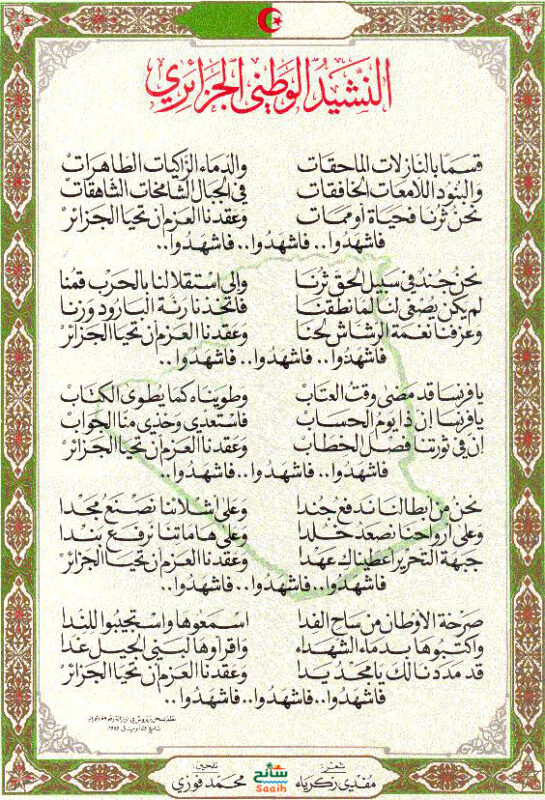 النَّشيدُ الوَطنِى الجَزائِري
قسمًا بالنازلات الماحقات والدماء الزاكيات الطاهرات
والبنود اللامعات الخافقات في الجبال الشامخات الشاهقات
نحن ثرنا فحياة أو ممات وعقدنا العزم أن تحيا الجزائر
فاشهدوا.. فاشهدوا.. فاشهدوا..
نحن جند في سبيل الحق ثرنا وإلى استقلالنا بالحرب قمنا
لم يكن يصغى لنا لما نطقنا فاتخذنا رنة البارود وزنا
وعزفنا نغمة الرشاش لحنا وعقدنا العزم أن تحيا الجزائر
فاشهدوا.. فاشهدوا.. فاشهدوا..
يا فرنسا قد مضى وقت العتاب وطويناه كما يطوى الكتاب
يا فرنسا إن ذا يوم الحساب فاستعدي وخذي منا الجواب
إن في ثورتنا فصل الخطاب وعقدنا العزم أن تحيا الجزائر
فاشهدوا.. فاشهدوا.. فاشهدوا..
نحن من أبطالنا ندفع جندا وعلى أشلائنا نصنع مجدا
وعلى أرواحنا نصعد خلدا وعلى هاماتنا نرفع بندا
جبهة التحرير أعطيناك عهدا وعقدنا العزم أن تحيا الجزائر
فاشهدوا.. فاشهدوا.. فاشهدوا..
صرخة الأوطان من ساح الفدا اسمعوها واستجيبوا للندا
واكتبوها بدماء الشهداء واقرأوها لبني الجيل غدا
قد مددنا لك يا مجد يدا وعقدنا العزم أن تحيا الجزائر
فاشهدوا.. فاشهدوا.. فاشهدوا..
شعر: تلحين:
مفدي زكرياء محمد فوزي
سائح
Saaih